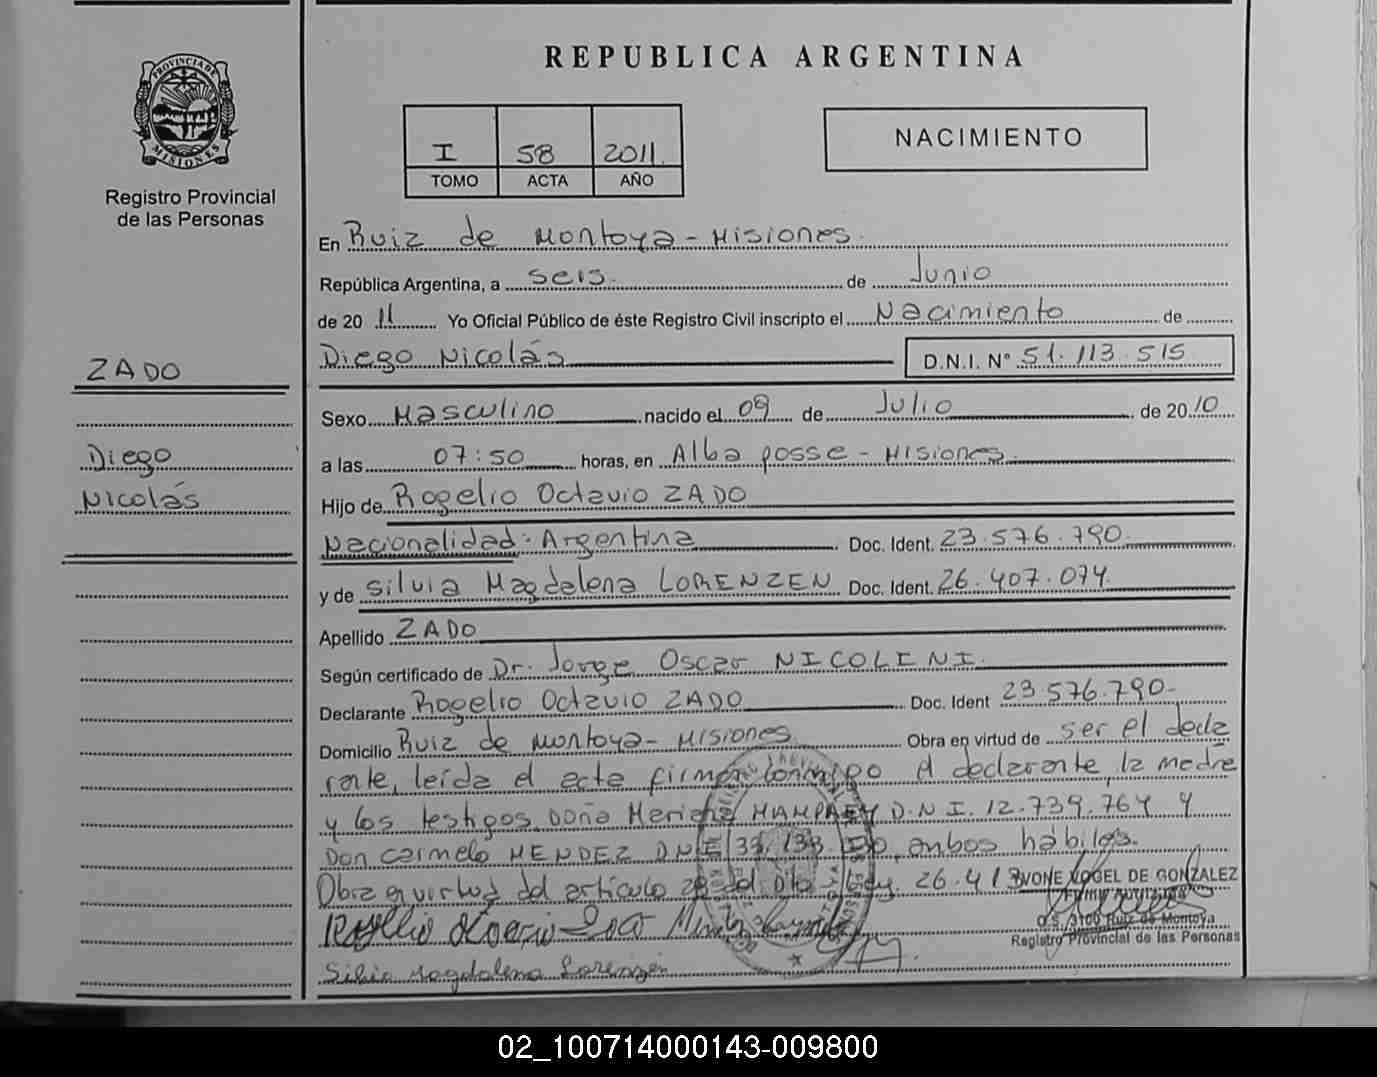 PROVINCIA DE MISIONES
Registro Provincial
de las Personas
ZADO
Diego
Nicolás
REPUBLICA ARGENTINA
I 58 2011
TOMO ACTA AÑO
NACIMIENTO
En Ruiz de Montoya - Misiones.
República Argentina, a seis. de Junio
de 20 11 Yo Oficial Público de éste Registro Civil inscripto el Nacimiento de
Diego Nicolás D.N.I. Nº 51.113.515
Sexo Masculino nacido el 09 de Julio de 20 10
a las 07:50 horas, en Alba posse - Misiones.
Hijo de Rogelio Octavio ZADO
Nacionalidad. Argentina Doc. Ident. 23.576.790.
y de Silvia Magdalena LORENZEN Doc. Ident. 26.407.074.
Apellido ZADO
Según certificado de Dr. Jorge Oscar NICOLINI.
Declarante Rogelio Octavio ZADO Doc. Ident 23.576.790-
Domicilio Ruiz de Montoya - Misiones. Obra en virtud de ser el decla
rante, leída el acta firman conmigo el declarante, la madre
y los testigos Doña D.N.I. 12.739.764 y
Don Carmelo MENDEZ DNI 33.133. ambos hábiles.
Obra en virtud del artículo 28 del Dto - Ley. 26.413
IVONE VOGEL DE GONZALEZ
O.S. /3100 Ruiz de Montoya
Registro Provincial de las Personas
Silvia Magdalena Lorenzen
02_100714000143-009800